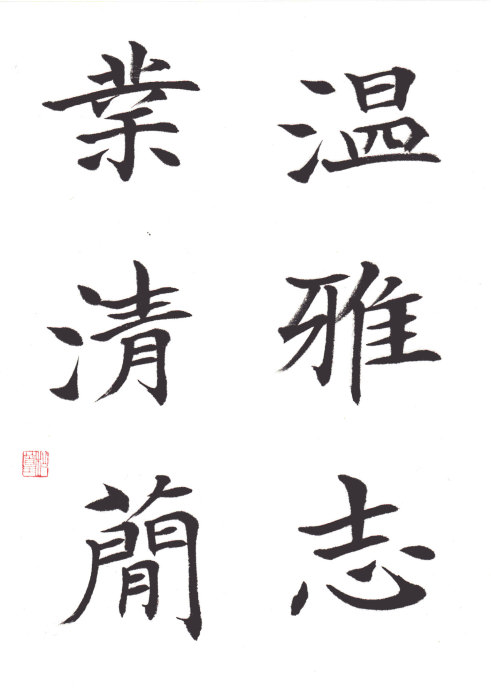 温雅志
業清簡